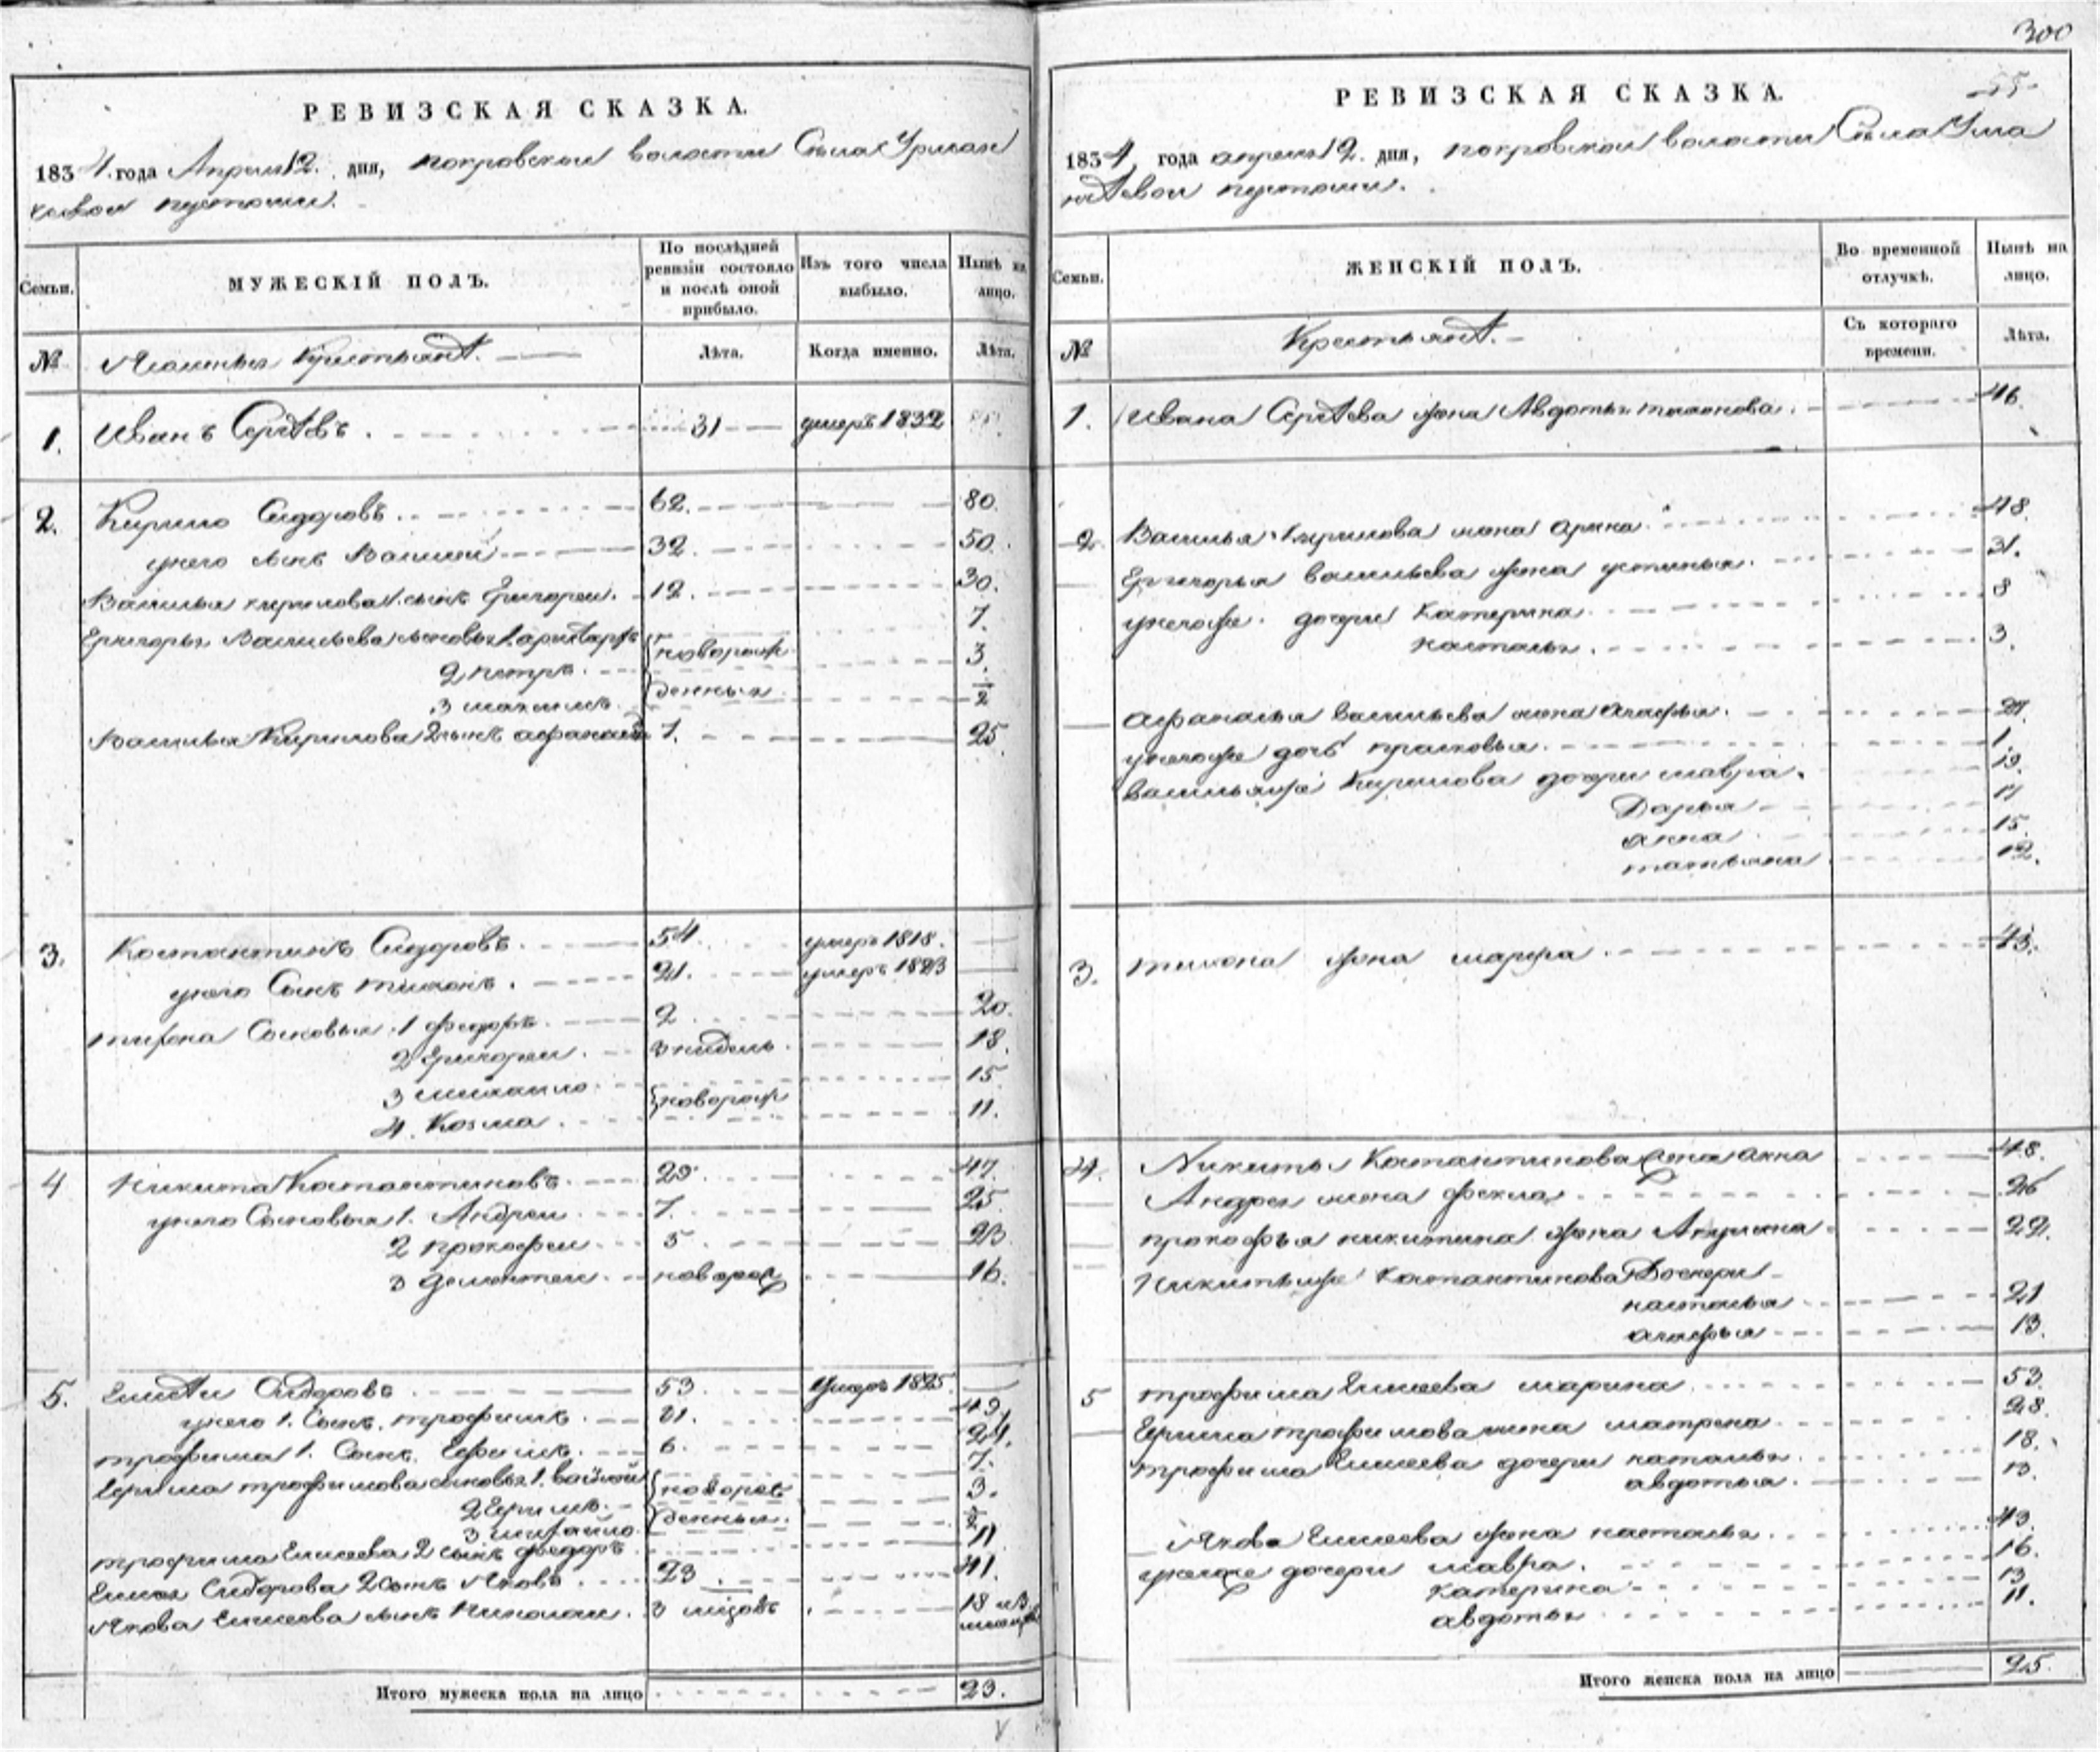 300
55
РЕВИЗСКАЯ СКАЗКА.
1834 года Апреля 12. дня, покровской волости Села Урман
чеевой пустоши.
Семьи.
МУЖЕСКІЙ ПОЛЪ.
По послѣдней ревизіи состояло и послѣ оной прибыло.
Изъ того числа выбыло.
Нынѣ на лицо.
№
крестьянѣ.
Лѣта.
Когда именно.
Лѣта.
1. Иванъ Сергѣевъ. 31 умеръ 1832
2. Кирило Сидоровъ. 62. 80.
унего сынъ Василей 32. 50.
Василья кирилова 1. сынъ Григореи. 12. 30.
Григорья Васильева сыновья 1. 7.
2 петръ. новорож 3.
3 максимъ. денныя 1/2
Василья Кирилова 2 сынъ афанасей 7. 25.
3. Костантинъ Сидоровъ. 54. умеръ 1818.
унего Сынъ тихонъ. 21. умеръ 1823
тихона Сыновья. 1 федоръ. 2 20.
2 Григореи. 3 нидель. 18.
3 михаило 15
4. Козма. новорож 11.
4 Никита Костантиновъ. 29. 47.
унего Сыновья 1. Андреи 7. 25.
2 прокофеи 5 23
3 дементеи. новорож 16.
5. Елисѣи Сидоровъ 53. умеръ 1825.
унего 1. Сынъ. трофимъ. 31. 49.
трофима 1. Сынъ. Ефимъ. 6. 24.
трофимова сыновья 1. 7.
2 новорож 3.
3 михайло денныя. 1/2
трофима Елисеева 2 сынъ федоръ 11
Елисея Сидорова 2 сынъ Яковъ. 23. 41.
Якова Елисеева сынъ Николаи. 3 18
Итого мужеска пола на лицо 23.
РЕВИЗСКАЯ СКАЗКА.
1834, года апреля 12. дня, покровской волости Села Урма
нчѣевой пустоши.
Семьи.
ЖЕНСКІЙ ПОЛЪ.
Во временной отлучкѣ.
Нынѣ на лицо.
№
Крестьянѣ.
Съ котораго времени.
Лѣта.
1. Ивана Сергѣева жена Авдотья тихонова. 46.
2. Василья кирилова жена Арина 48.
Григорья васильева жена устинья. 31.
унегоже. дочери Катерина 8
настасья. 3.
афанасья васильева жена агафья.
унегоже дочь прасковья. 1
васильяже Кирилова дочери мавра. 19.
Дарья 17
анна 15.
татьяна 12.
3. тихона жена марфа 43.
4. Никиты Костантинова жена анна 48.
Андрея жена фекла 26
прокофья никитина жена Акулина 22.
Никитыже Костантинова Дочери
настасья 21
агафья 13.
5 трофима Елисеева марина 53.
трофимова жена матрена 28.
трофима Елисеева дочери наталья 18.
авдотья. 13.
Якова Елисеева жена настасья 43.
унегоже дочери мавра. 16.
Катерина 13
авдотья 11.
Итого женска пола на лицо 25.